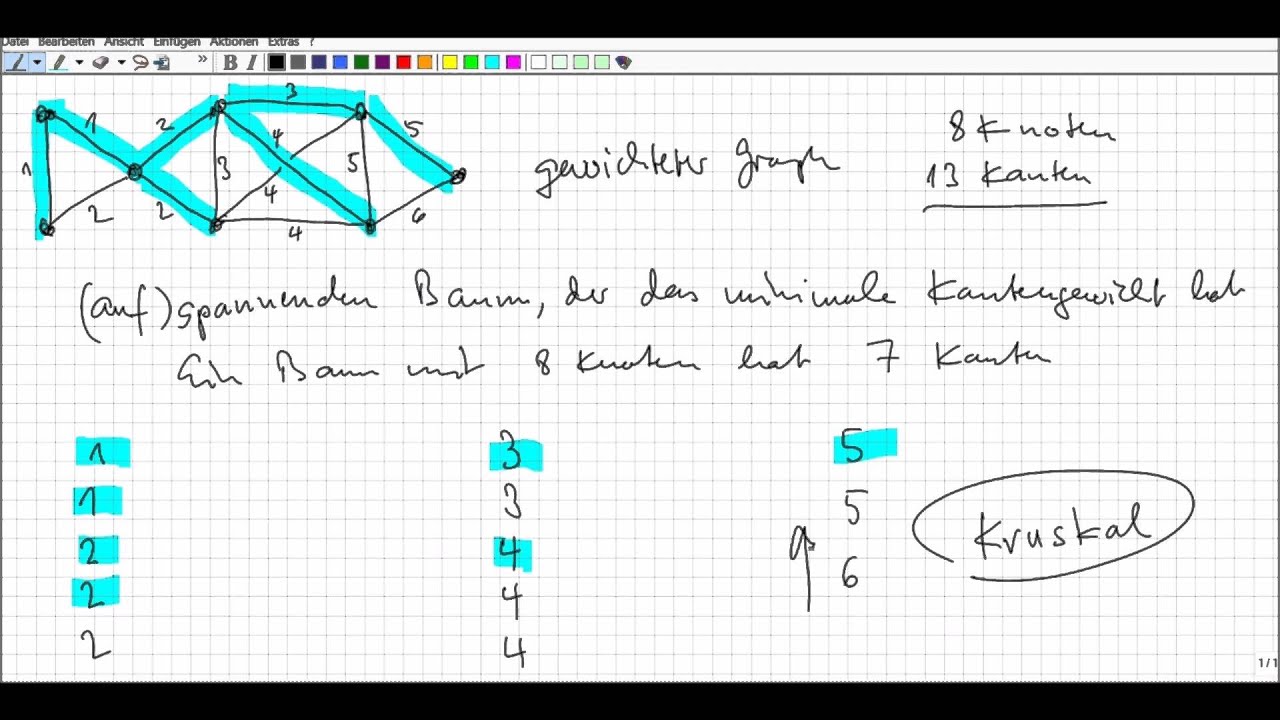 Datei Bearbeiten Ansicht Einfügen Aktionen Extras ?
» B I
1 2 3 4 5
1 3 5
2 2 4 4 6
gewichteter Graph
8 Knoten
13 Kanten
(auf)spannenden Baum, der das minimale Kantengewicht hat
Ein Baum mit 8 Knoten hat 7 Kanten
1 3 5
1 3 5
2 4 6
2 4
2 4
Kruskal
1/1